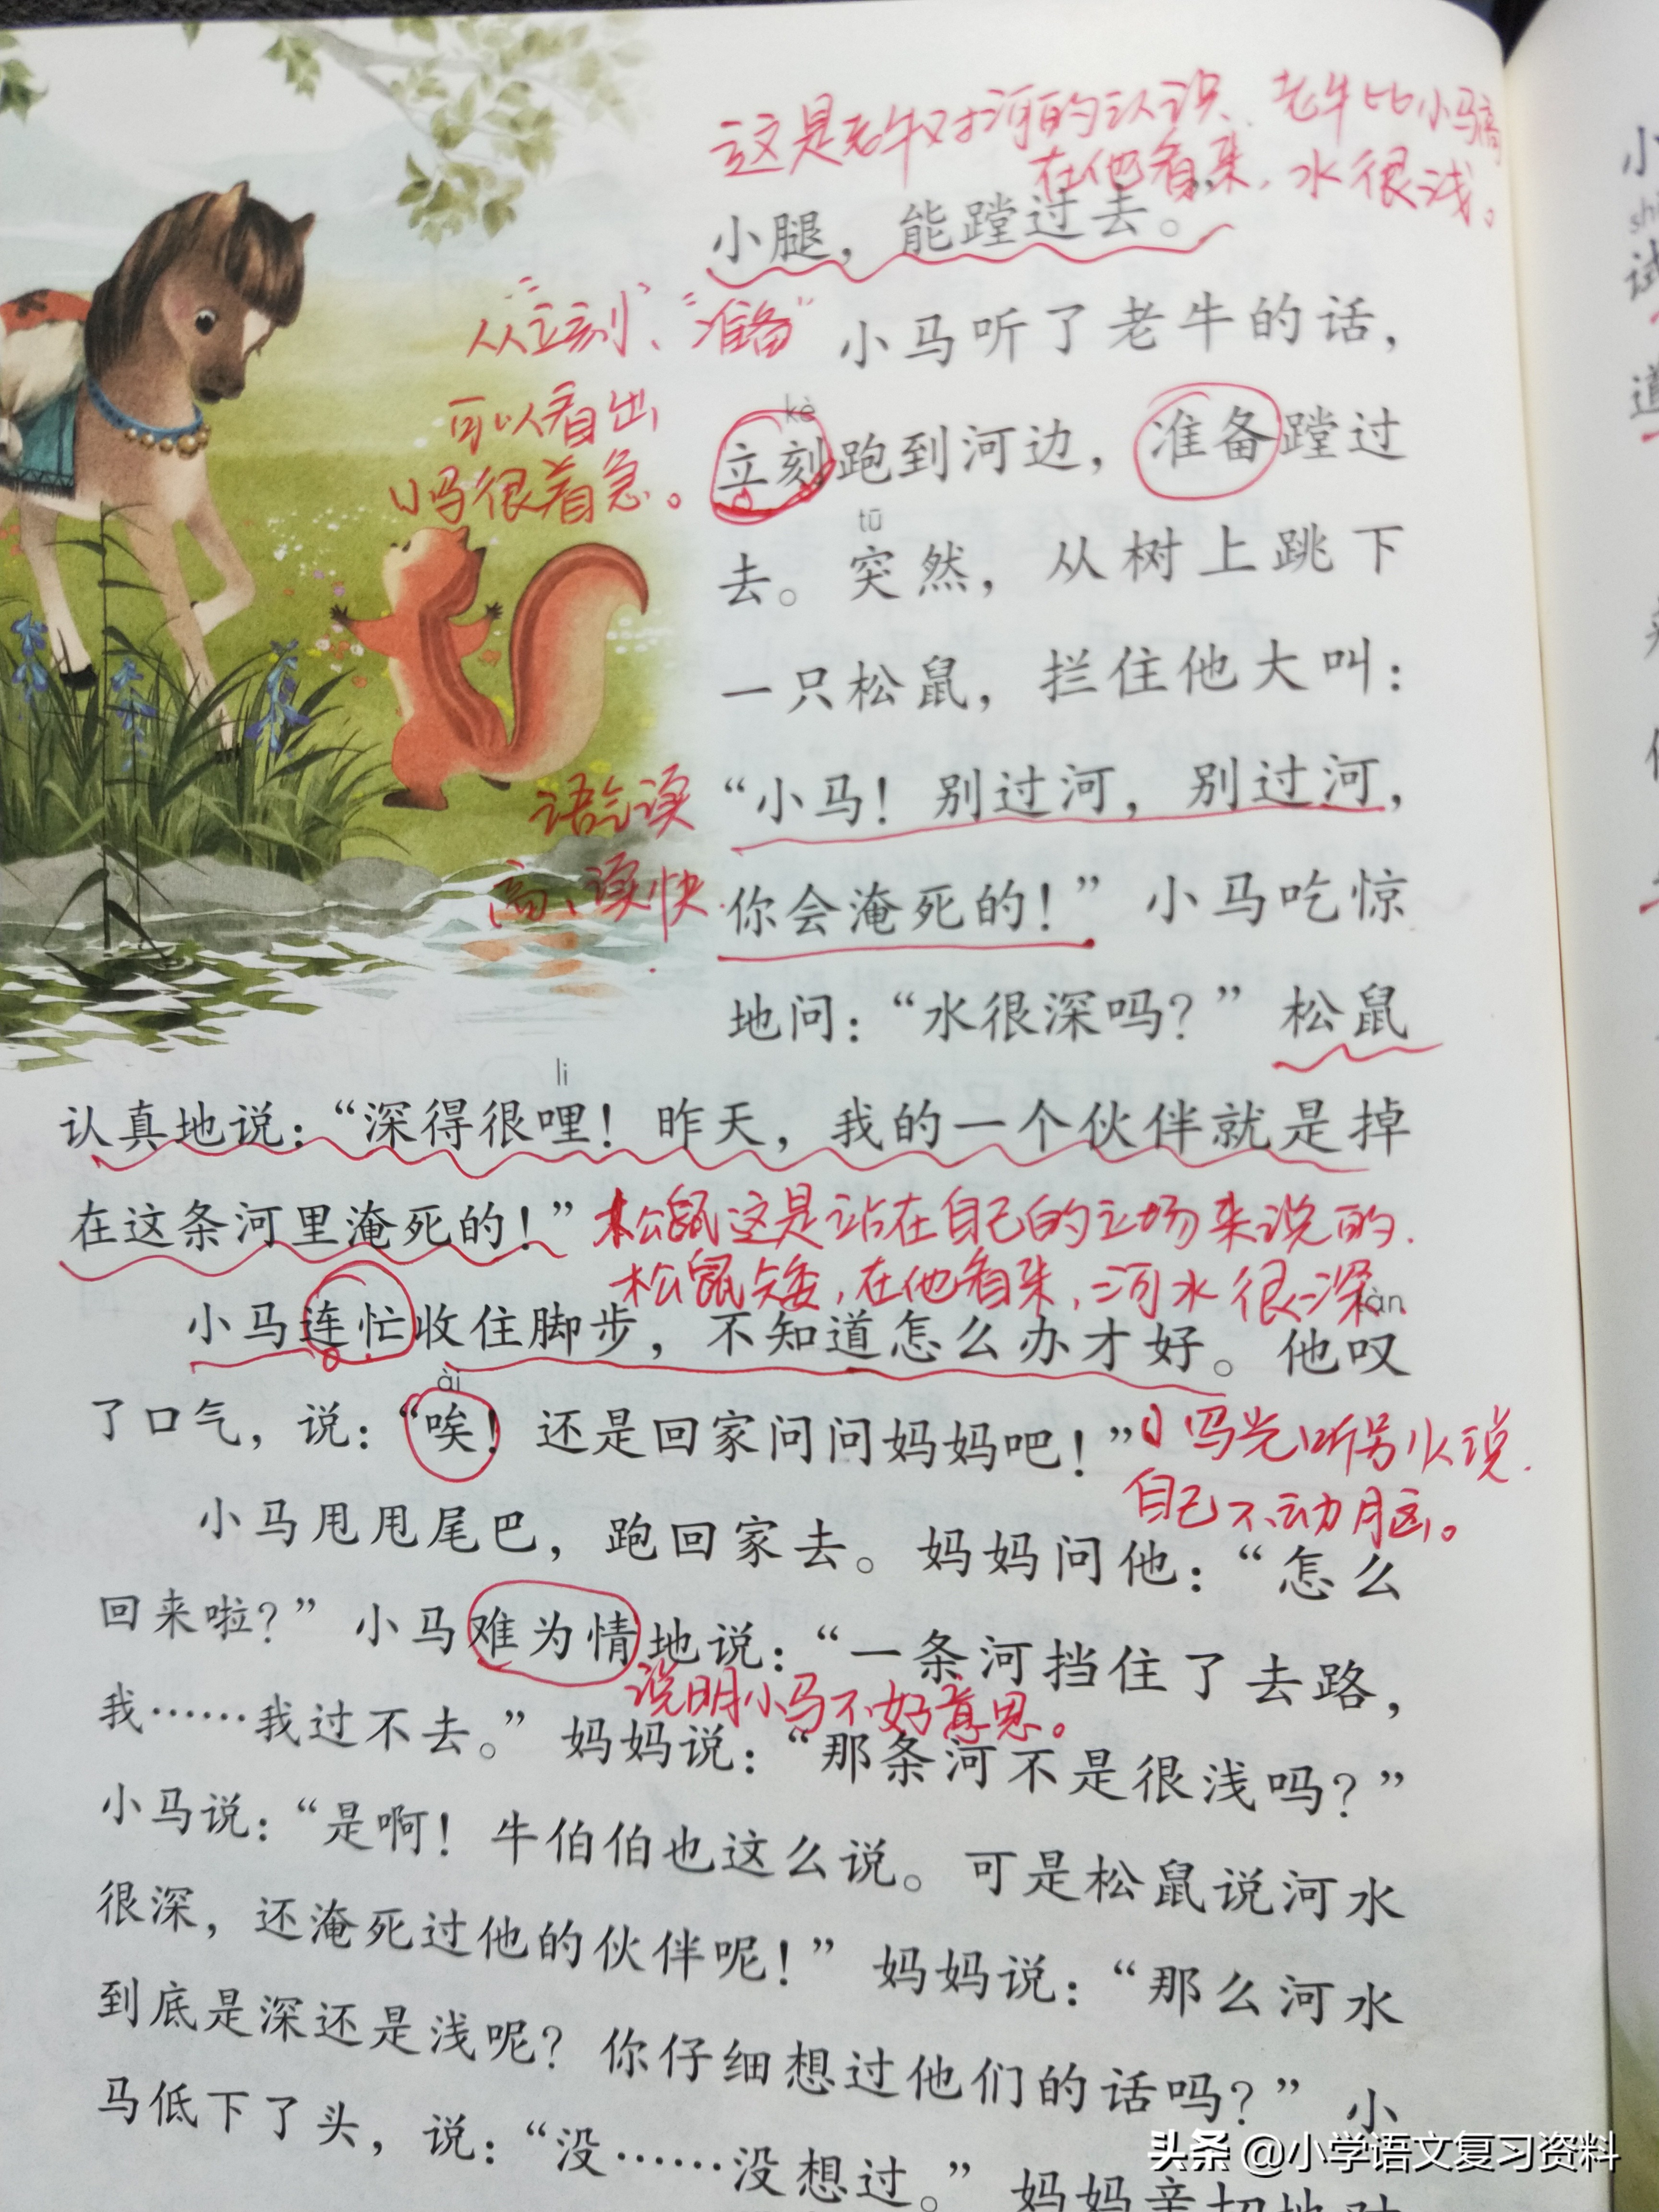 这是老牛对河的认识、老牛比小马高
在他看来，水很浅。
小腿，能蹚过去。”
从“立刻”、“准备”
小马听了老牛的话，
可以看出
kè
立刻跑到河边，准备蹚过
小马很着急。
tū
去。突然，从树上跳下
一只松鼠，拦住他大叫：
语气读
“小马！别过河，别过河，
高、读快.
你会淹死的！”小马吃惊
地问：“水很深吗？”松鼠
li
认真地说：“深得很哩！昨天，我的一个伙伴就是掉
在这条河里淹死的！”
松鼠这是站在自己的立场来说的.
松鼠矮，在他看来，河水很深
tàn
小马连忙收住脚步，不知道怎么办才好。他叹
ài
了口气，说：“唉！还是回家问问妈妈吧！”
小马光听别人说.
自己不动脑。
小马甩甩尾巴，跑回家去。妈妈问他：“怎么
回来啦？”小马难为情地说：“一条河挡住了去路，
说明小马不好意思。
我……我过不去。”妈妈说：“那条河不是很浅吗？”
小马说：“是啊！牛伯伯也这么说。可是松鼠说河水
很深，还淹死过他的伙伴呢！”妈妈说：“那么河水
到底是深还是浅呢？你仔细想过他们的话吗？”小
马低下了头，说：“没……没想过。”妈妈亲切地对
头条 @小学语文复习资料
小
试
道